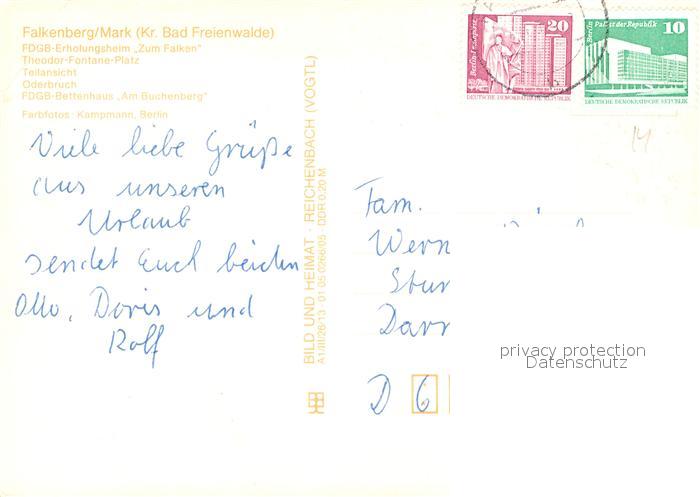 Falkenberg/Mark (Kr. Bad Freienwalde)
FDGB-Erholungsheim „Zum Falken"
Theodor-Fontane-Platz
Teilansicht
Oderbruch
FDGB-Bettenhaus „Am Buchenberg"
Farbfotos: Kampmann, Berlin
Viele liebe Grüße
aus unseren
Urlaub
sendet Euch beiden
Otto, Doris und
Rolf
BILD UND HEIMAT · REICHENBACH (VOGTL)
A1/III/26/13 01 05 0266/05 DDR 0,20 M
20
Berlin, Leninplatz
DEUTSCHE DEMOKRATISCHE REPUBLIK
Berlin Palast der Republik
10
DEUTSCHE DEMOKRATISCHE REPUBLIK
14
Fam.
Wern
Stur
Darr
D 6
privacy protection
Datenschutz